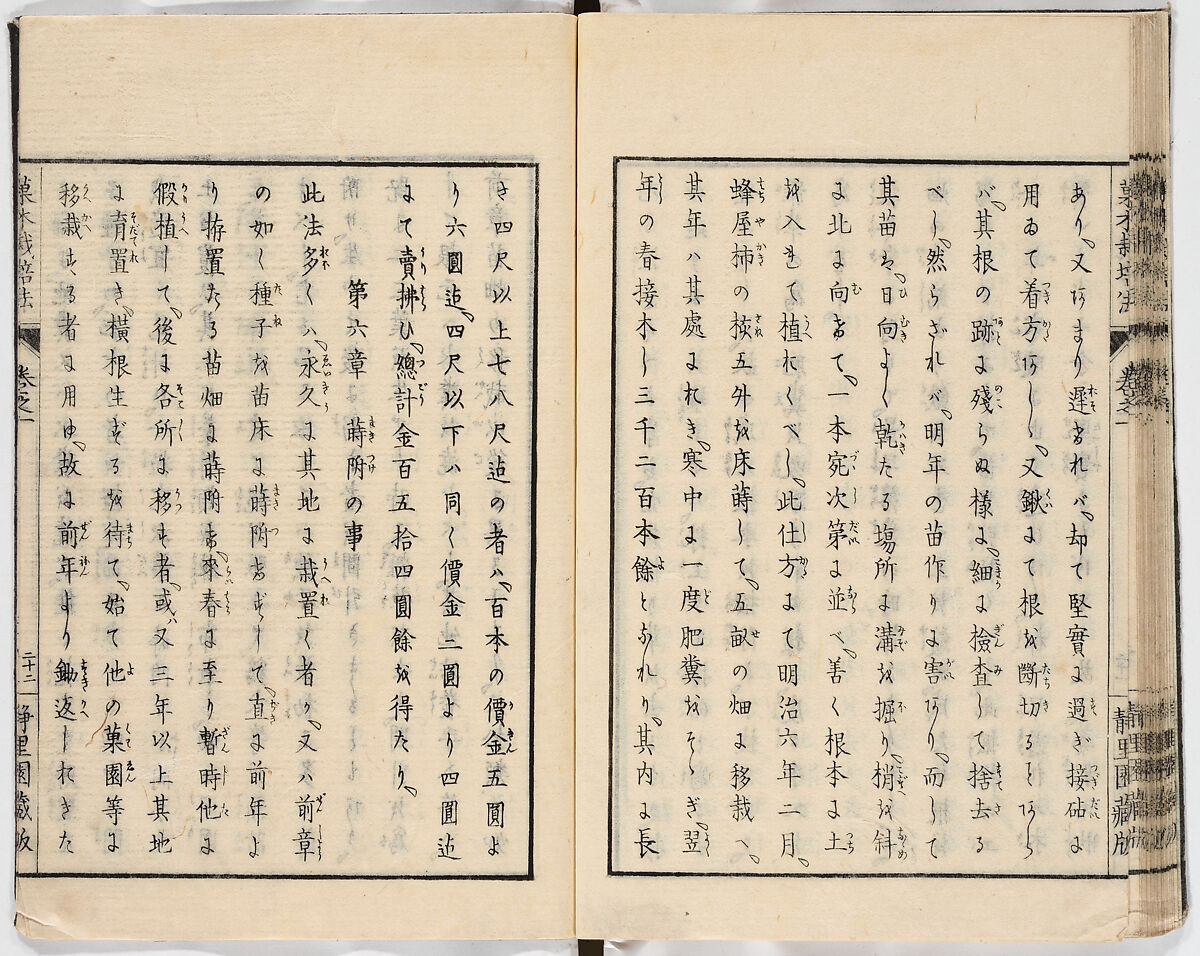 菓木栽培法 卷之一 靜里園藏版
あり、又あまり遲ければ、却て堅實に過ぎ接砧に
用ゐて着方あしゝ、又鍬にて根を斷切るときハ
バ、其根の跡に殘らぬ様に、細に檢査して捨去る
べし、然らざれバ、明年の苗作りに害あり、而して
其苗は、日向よく乾たる塲所に溝を掘り、梢を斜
に北に向けて、一本宛次第に並べ、善く根本に土
を入れて植おくべし、此仕方にて明治六年二月、
蜂屋柿の核五外を床蒔して、五畝の畑に移栽へ、
其年ハ其處におき、寒中に一度肥糞をそゝぎ、翌
年の春接木し三千二百本餘となれり、其内に長
き四尺以上七八尺迠の者ハ、百本の價金五圓よ
り六圓迠、四尺以下ハ同く價金三圓より四圓迠
にて賣拂ひ、總計金百五拾四圓餘を得たり、
第六章 蒔附の事
此法多くハ、永久に其地に栽置く者か、又ハ前章
の如く種子を苗床に蒔附けずして、直に前年よ
り拵置たる苗畑に蒔附け、來春に至り暫時他に
假植して、後に各所に移す者、或ハ又三年以上其地
に育置き、横根生ずるを待て、始て他の菓園等に
移栽する者に用ゆ、故に前年より鋤返しおきた
菓木栽培法 卷之一 二十二 靜里園藏版